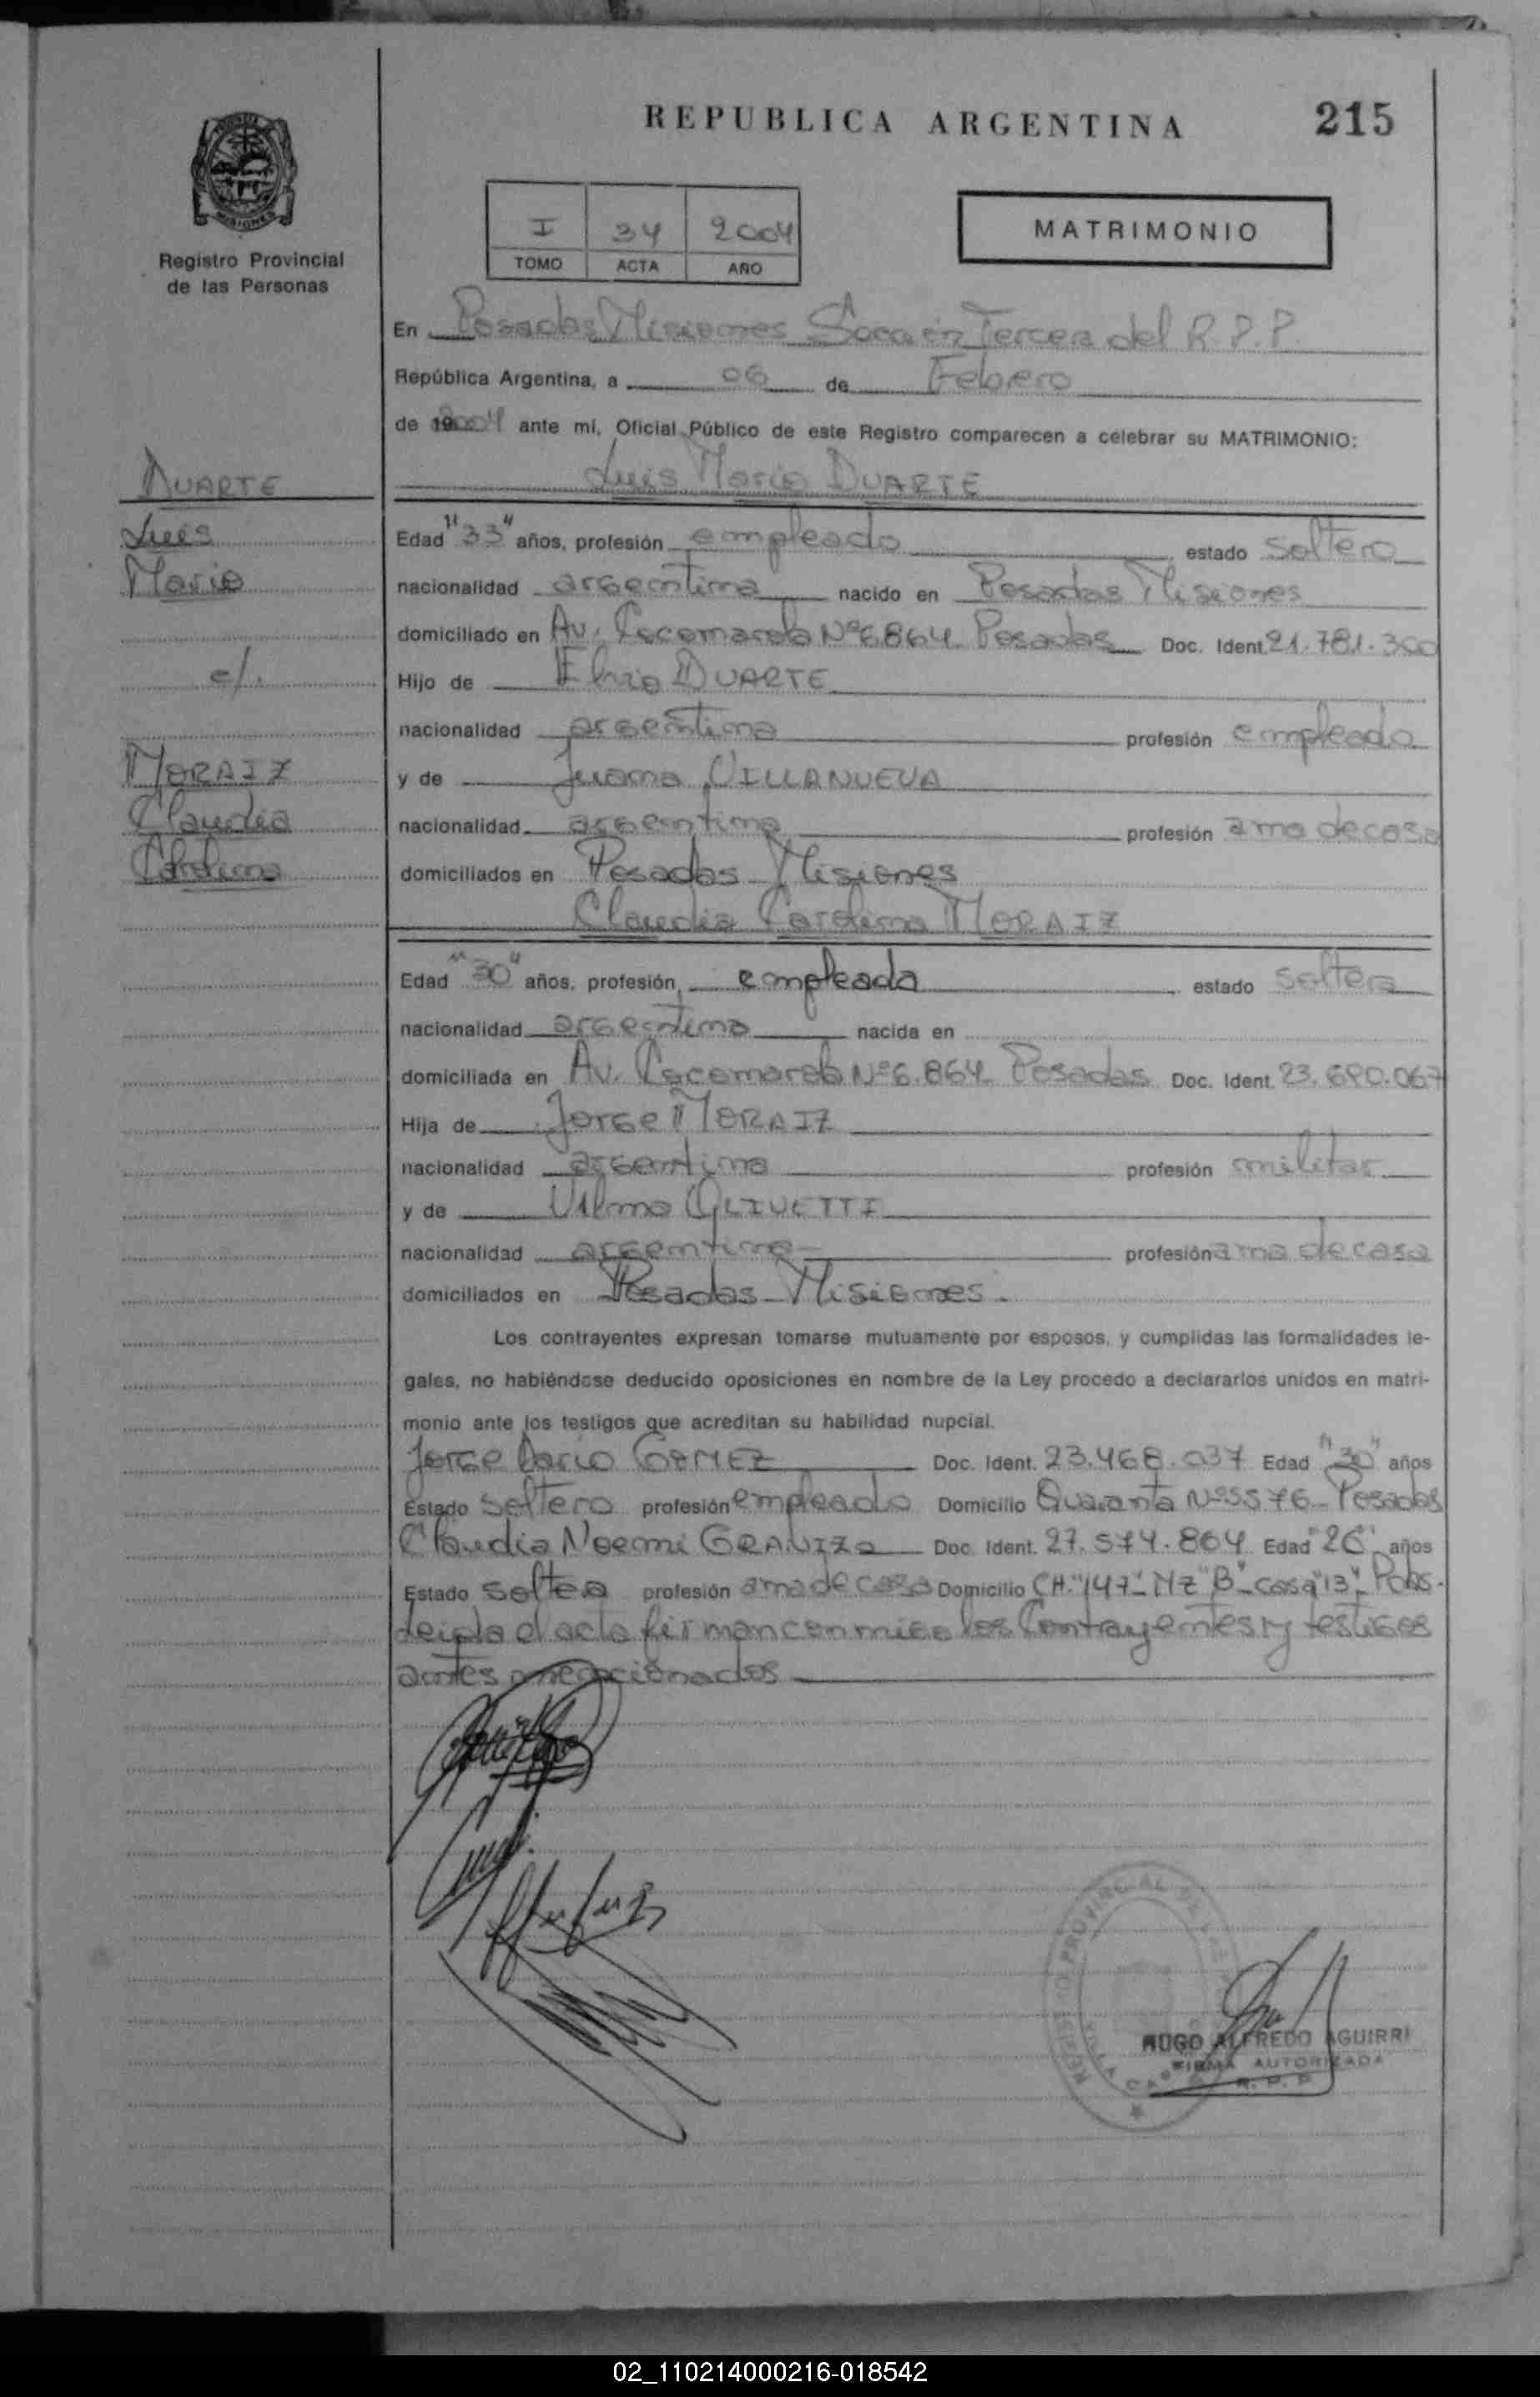 REPUBLICA ARGENTINA
215
MISIONES
Registro Provincial
de las Personas
I 34 2004
TOMO ACTA AÑO
MATRIMONIO
En Posadas Misiones Tercera del R.P.P.
República Argentina, a 06 de Febrero
de 2004 ante mí, Oficial Público de este Registro comparecen a celebrar su MATRIMONIO:
DUARTE
Luis
Mario
c/.
MORAIZ
Claudia
Carolina
Luis Mario DUARTE
Edad "33" años, profesión empleado estado soltero
nacionalidad argentina nacido en Posadas Misiones
domiciliado en Av. Cocomarola Nº 6.864 Posadas Doc. Ident. 21.781.300
Hijo de Elvio DUARTE
nacionalidad argentina profesión empleado
y de Juana VILLANUEVA
nacionalidad argentina profesión ama de casa
domiciliados en Posadas Misiones
Claudia Carolina MORAIZ
Edad "30" años, profesión, empleada estado soltera
nacionalidad argentina nacida en
domiciliada en Av. Cocomarola Nº 6.864 Posadas Doc. Ident. 23.690.067
Hija de Jorge MORAIZ
nacionalidad argentina profesión militar
y de Vilma OLIVETTI
nacionalidad argentina profesión ama de casa
domiciliados en Posadas - Misiones.
Los contrayentes expresan tomarse mutuamente por esposos, y cumplidas las formalidades le-
gales, no habiéndose deducido oposiciones en nombre de la Ley procedo a declararlos unidos en matri-
monio ante los testigos que acreditan su habilidad nupcial.
Jorge Dario GOMEZ Doc. Ident. 23.468.037 Edad "30" años
Estado soltero profesión empleado Domicilio Quaranta Nº 5576 - Posadas
Claudia Noemi Doc. Ident. 27.574.864 Edad "26" años
Estado soltera profesión ama de casa Domicilio CH. "147" - MZ "B" - casa "13" - Pdas.
Leída el acta firman conmigo los Contrayentes y testigos
antes mencionados
REGISTRO PROVINCIAL DE LAS
HUGO ALFREDO AGUIRRE
FIRMA AUTORIZADA
R. P. P.
02_110214000216-018542